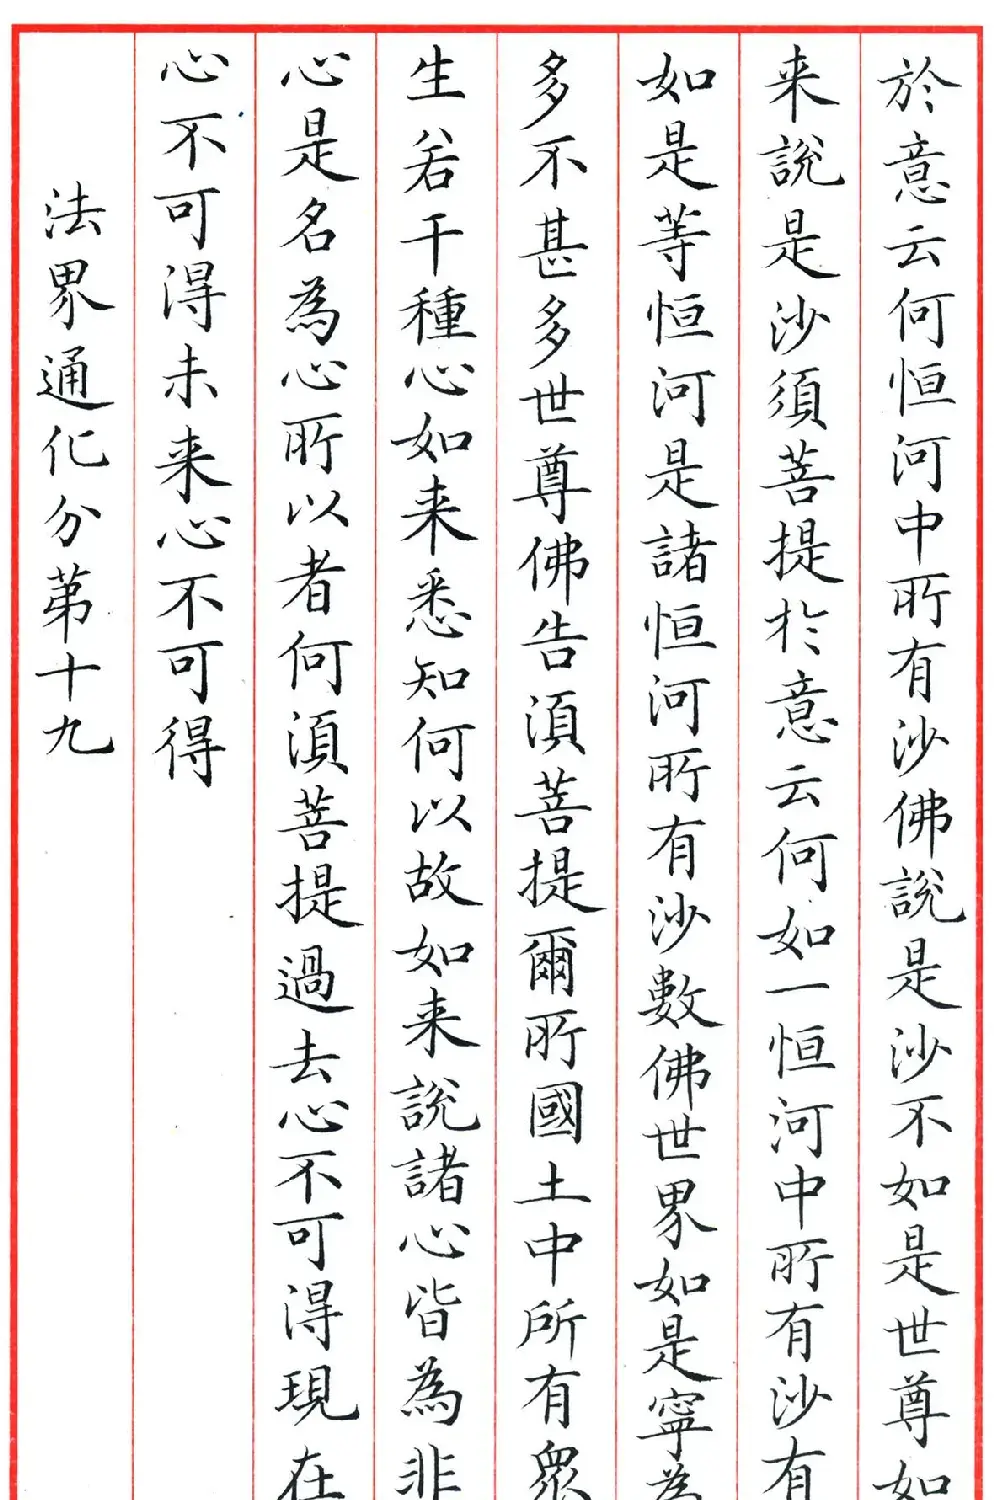 於意云何恒河中所有沙佛說是沙不如是世尊如
来說是沙須菩提於意云何如一恒河中所有沙有
如是等恒河是諸恒河所有沙數佛世界如是寧為
多不甚多世尊佛告須菩提爾所國土中所有眾
生若干種心如来悉知何以故如来說諸心皆為非
心是名為心所以者何須菩提過去心不可得現在
心不可得未来心不可得
法界通化分第十九